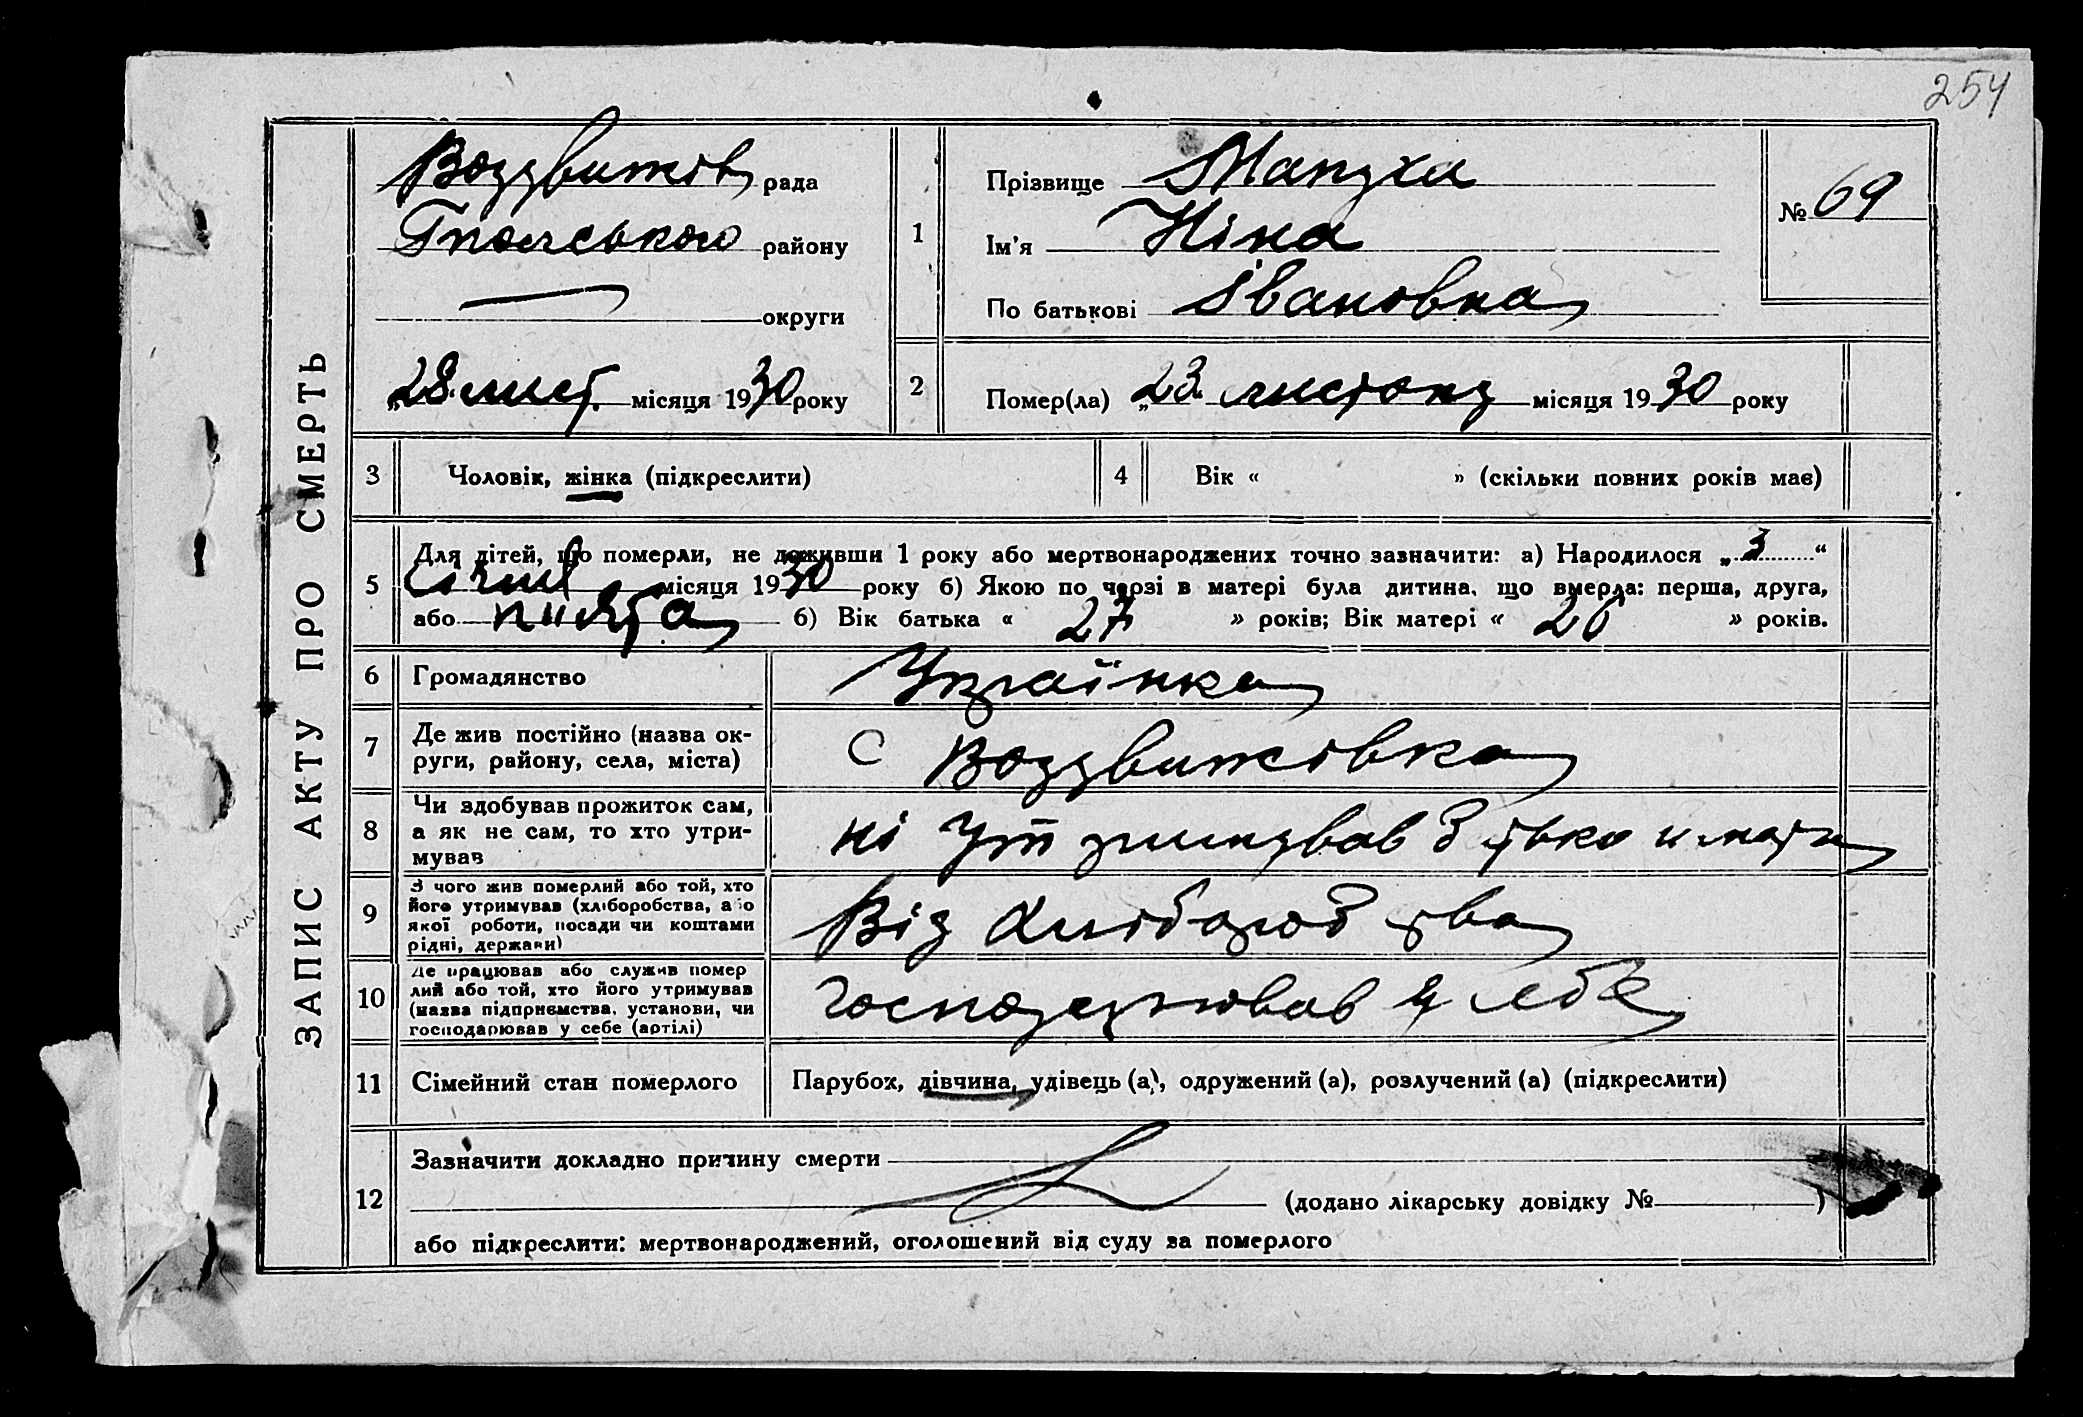 254
ЗАПИС АКТУ ПРО СМЕРТЬ
Воздвижів рада
району
округи
„28 лист. місяця 1930 року
1
Прізвище Мапуха
Ім'я Ніна
По батькові Івановна
№ 69
2
Помер(ла) „23 листопад місяця 1930 року
3
Чоловік, жінка (підкреслити)
4
Вік « » (скільки повних років має)
5
Для дітей, що померли, не доживши 1 року або мертвонароджених точно зазначити: а) Народилося „3“
Січня місяця 1930 року б) Якою по черзі в матері була дитина, що вмерла: перша, друга,
або пията б) Вік батька « 27 » років; Вік матері « 26 » років.
6
Громадянство
Українка
7
Де жив постійно (назва ок-
руги, району, села, міста)
с Воздвижівка
8
Чи здобував прожиток сам,
а як не сам, то хто утри-
мував
ні Утримував Батько и мати
9
З чого жив померлий або той, хто
його утримував (хліборобства, або
якої роботи, посади чи коштами
рідні, держави)
Від Хліборобства
10
Де працював або служив помер
лий або той, хто його утримував
(назва підприємства, установи, чи
господарював у себе (артілі)
господарював у себе
11
Сімейний стан померлого
Парубок, дівчина, удівець (а), одружений (а), розлучений (а) (підкреслити)
12
Зазначити докладно причину смерти
(додано лікарську довідку № )
або підкреслити: мертвонароджений, оголошений від суду за померлого